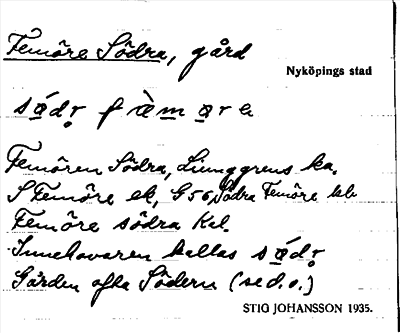 Femöre Södra, gård
Nyköpings stad
sǻdr fræmȧre
Femören Södra, Ljunggrens ka.
S Femöre ek, G56, Södra Femöre kb
Femöre södra Kel.
Innehavaren kallas sǻdr
Gården ofta Södern (se d.o.)
STIG JOHANSSON 1935.